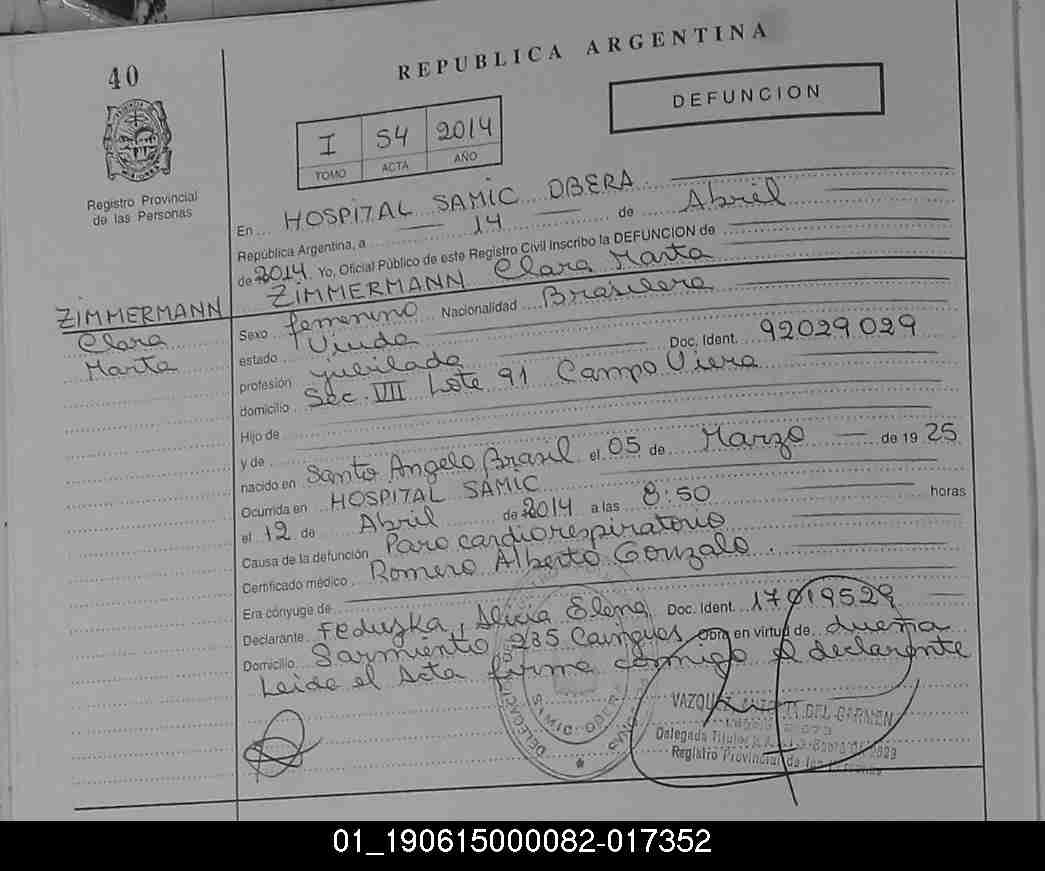 40
REPUBLICA ARGENTINA
DEFUNCION
I S4 2014
TOMO ACTA AÑO
Registro Provincial
de las Personas
En HOSPITAL SAMIC OBERA
República Argentina, a 14 de Abril
de 2014. Yo, Oficial Público de este Registro Civil Inscribo la DEFUNCION de
ZIMMERMANN Clara Marta
ZIMMERMANN
Clara
Marta
Sexo femenino Nacionalidad Brasilera
estado Viuda
profesión jubilada Doc. Ident. 92029029
domicilio Sec. VII Lote 91 Campo Viera
Hijo de
y de
nacido en Santo Angelo Brasil el 05 de Marzo de 19 25
Ocurrida en HOSPITAL SAMIC
el 12 de Abril de 2014 a las 8:50 horas
Causa de la defunción Paro cardiorespiratorio
Certificado médico Romero Alberto Gonzalo.
Era cónyuge de
Declarante Feduzka, Alicia Elena Doc. Ident. 17019529
Domicilio Sarmiento 235 Obra en virtud de dueña
Leida el Acta firma conmigo el declarante
DEL CARMEN
Delegada Titular
Registro Provincial de las
SAMIC OBERA
01_190615000082-017352